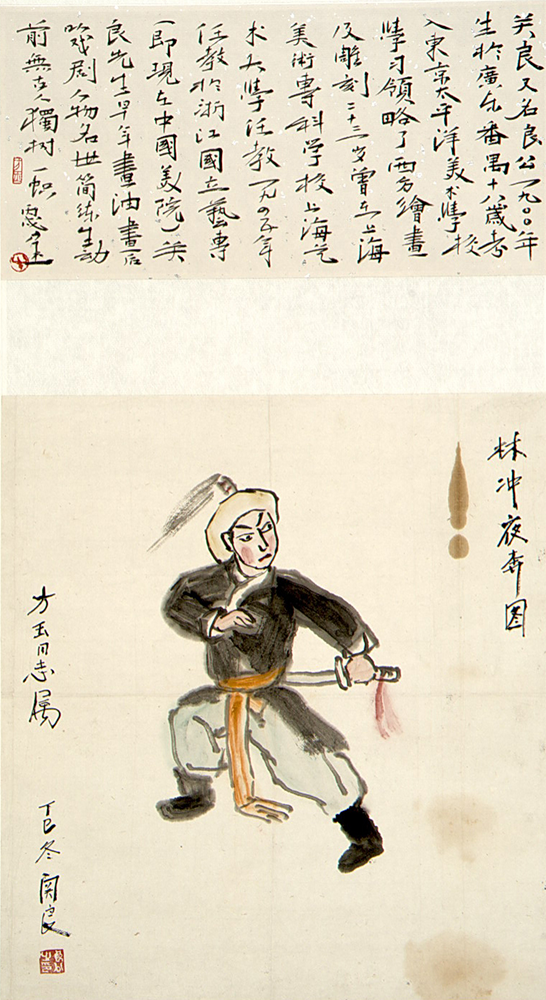 关良又名良公一九〇〇年
生於廣东番禺十八歲考
入東京太平洋美术學校
學习領略了西方繪畫
及雕刻二十三岁曾在上海
美術專科学校上海艺
术大學任教一九四五年
任教於浙江國立藝專
(即現在中國美院)关
良先生早年畫油畫后
戏剧人物名世簡练生動
前無古人獨树一帜
林冲夜奔图
方玉同志属
丁巳冬 関良